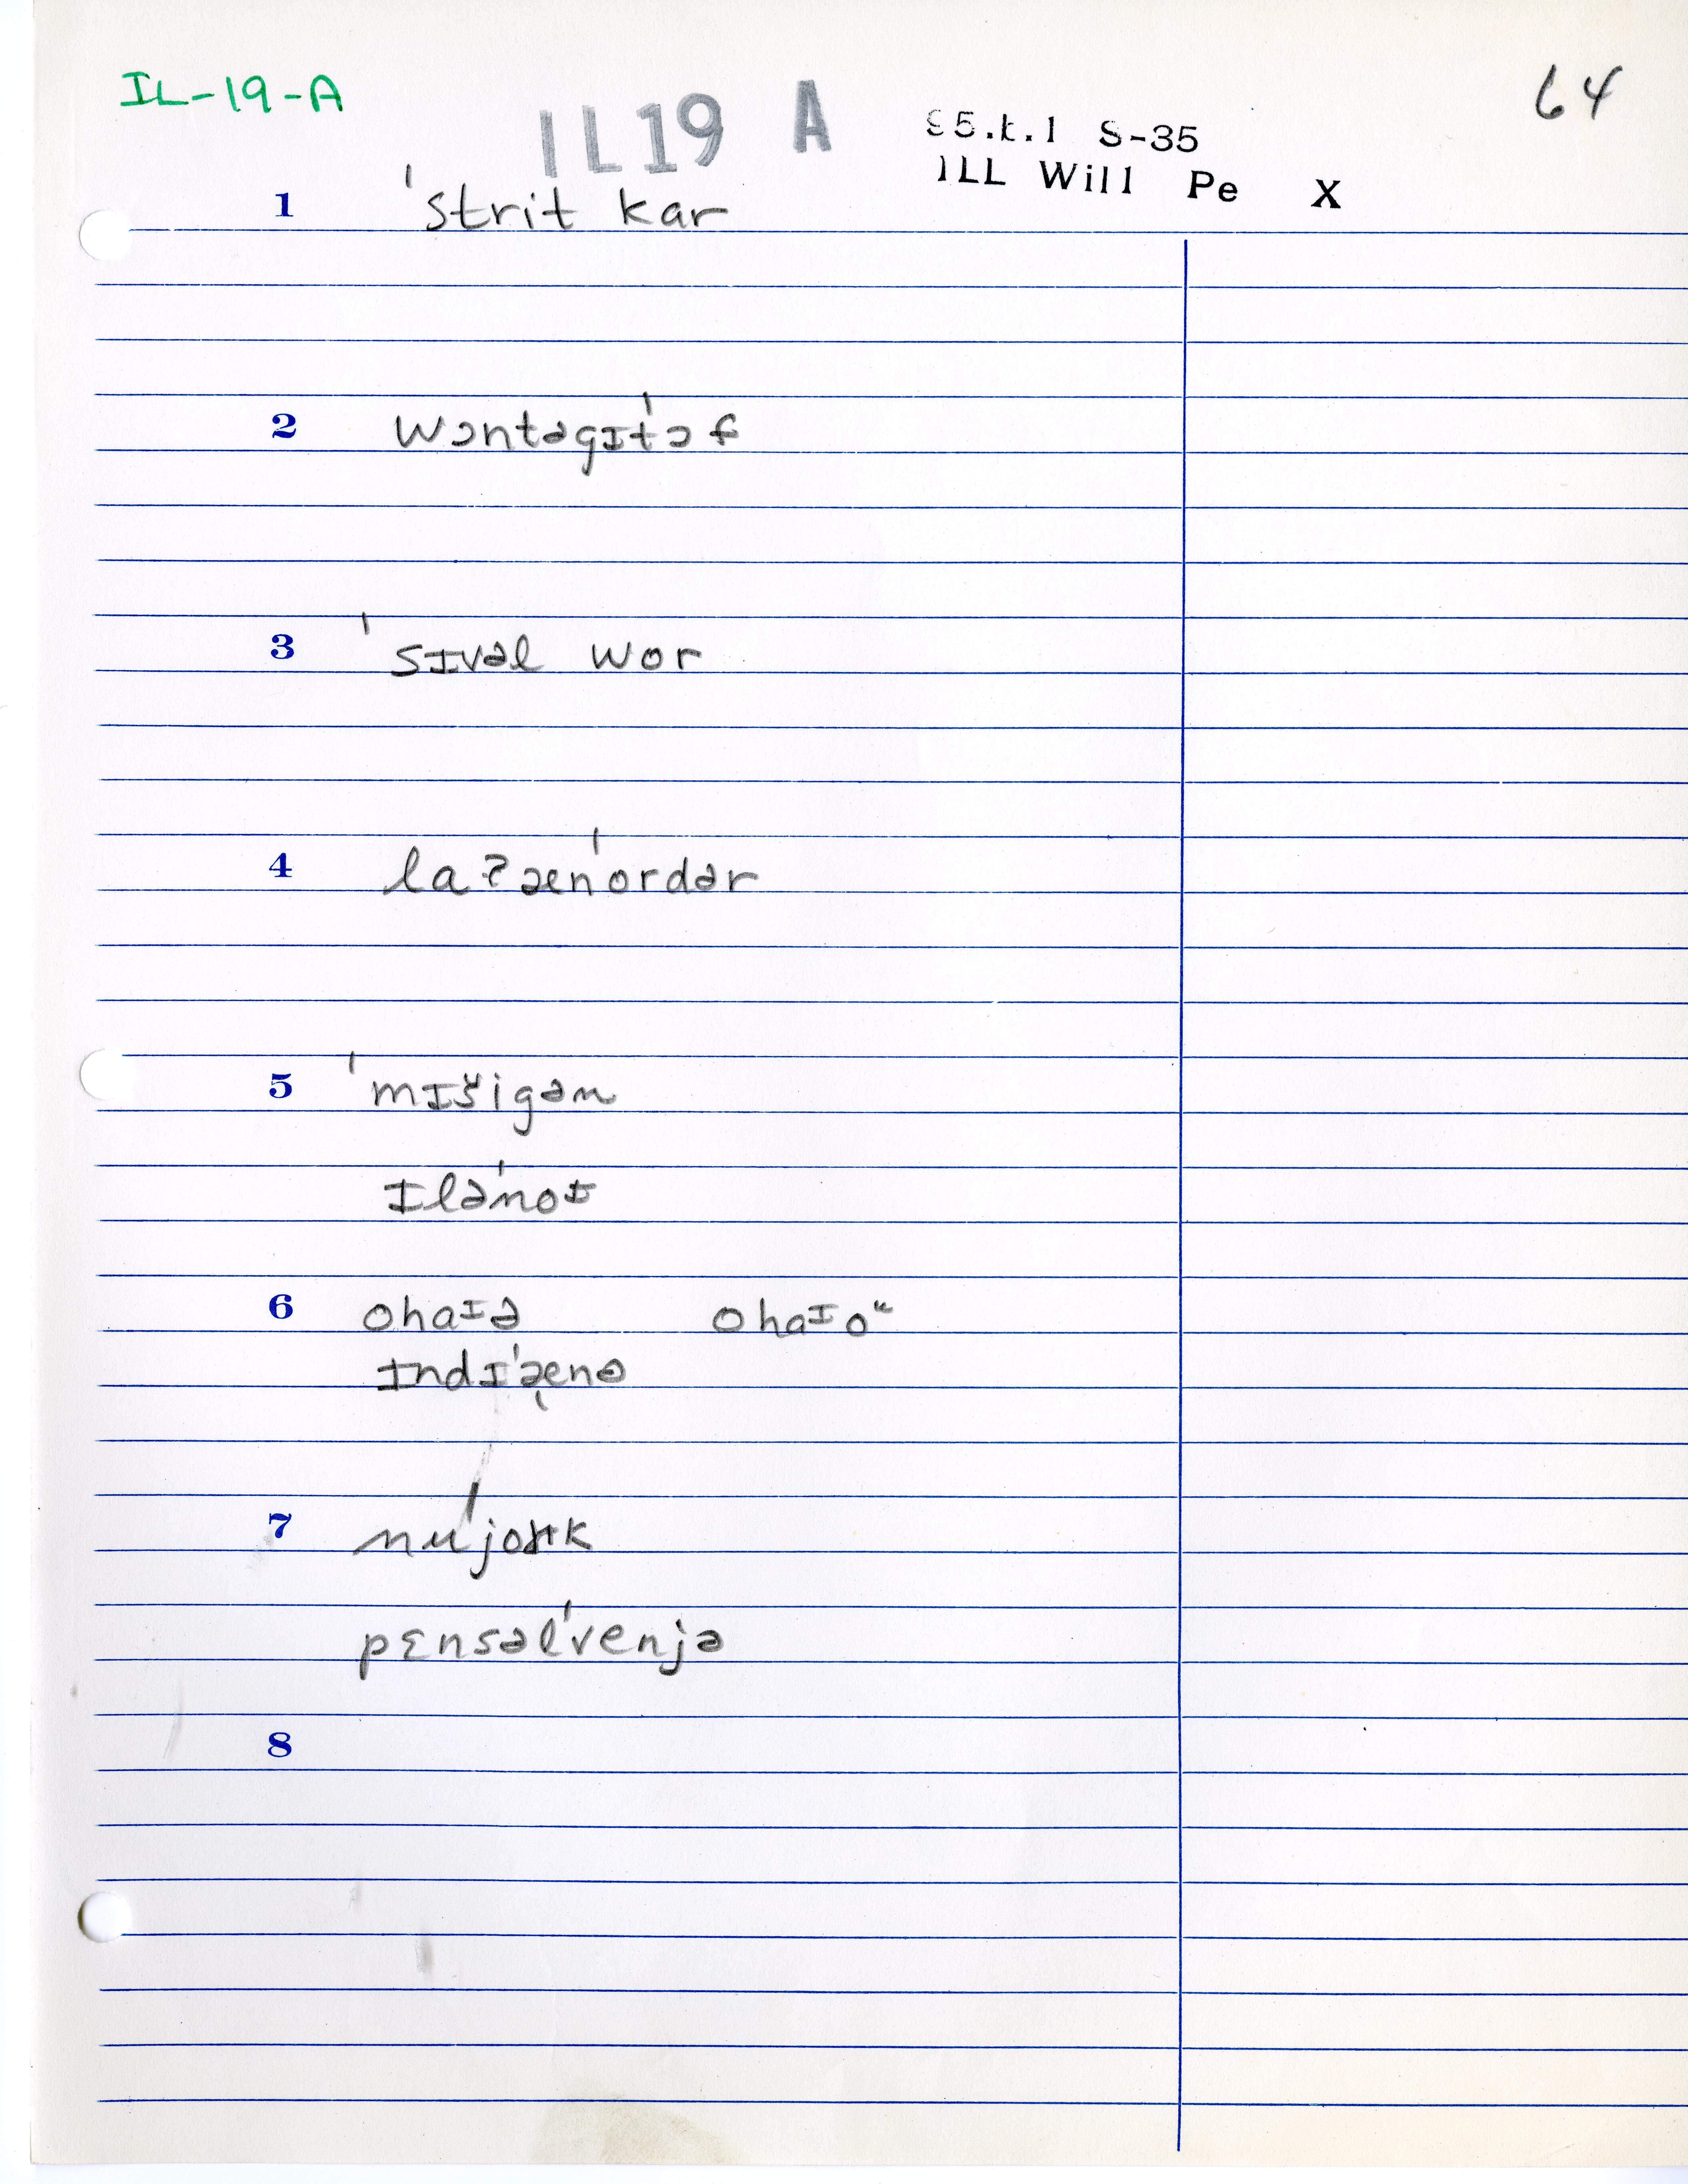 IL-19-A
64
IL19 A
S5.k.1 S-35
ILL Will Pe X
1 ˈstrit kar
2 wɔntəgɪtˈɔf
3 ˈsɪvəl wor
4 laʔænˈordər
5 ˈmɪšigən
ɪləˈnoɪ
6 ohaɪə ohaɪoᵘ
ɪndɪˈænə
7 nuˈjork
pɛnsəlˈvenjə
8